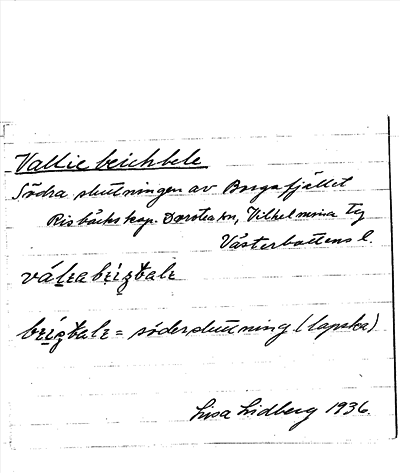 Valliebeichbele
Södra sluttningen av Borgafjället
Risbäcks kap. Dorotea sn, Vilhelmina tg
Västerbottens l.
= södersluttning (lapska)
Lisa Lidberg 1936.